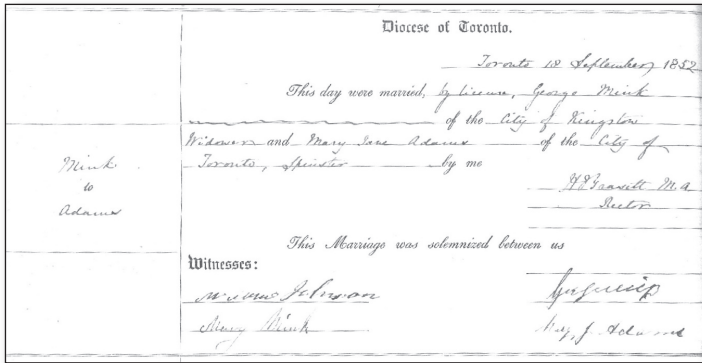 Diocese of Toronto.
Toronto 18 September 1852
This day were married, by licence, George Mink
of the City of Kingston
Widower and Mary Jane Adams of the City of
Toronto, Spinster by me
M.A
Rector
Mink
to
Adams
This Marriage was solemnized between us
Witnesses:
Johnson
Mary Mink
Mary J. Adams